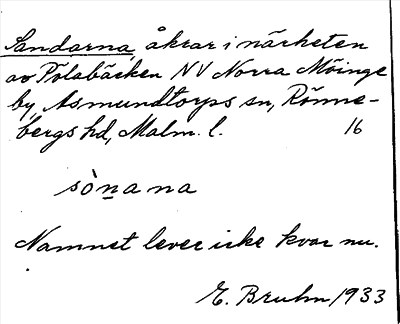 Sandarna, åkrar i närheten
av Pölabäcken NV Norra Möinge
by, Asmundtorps sn, Rönne-
bergs hd, Malm. l. 16
sòṉa na
Namnet lever icke kvar nu.
E. Bruhn 1933